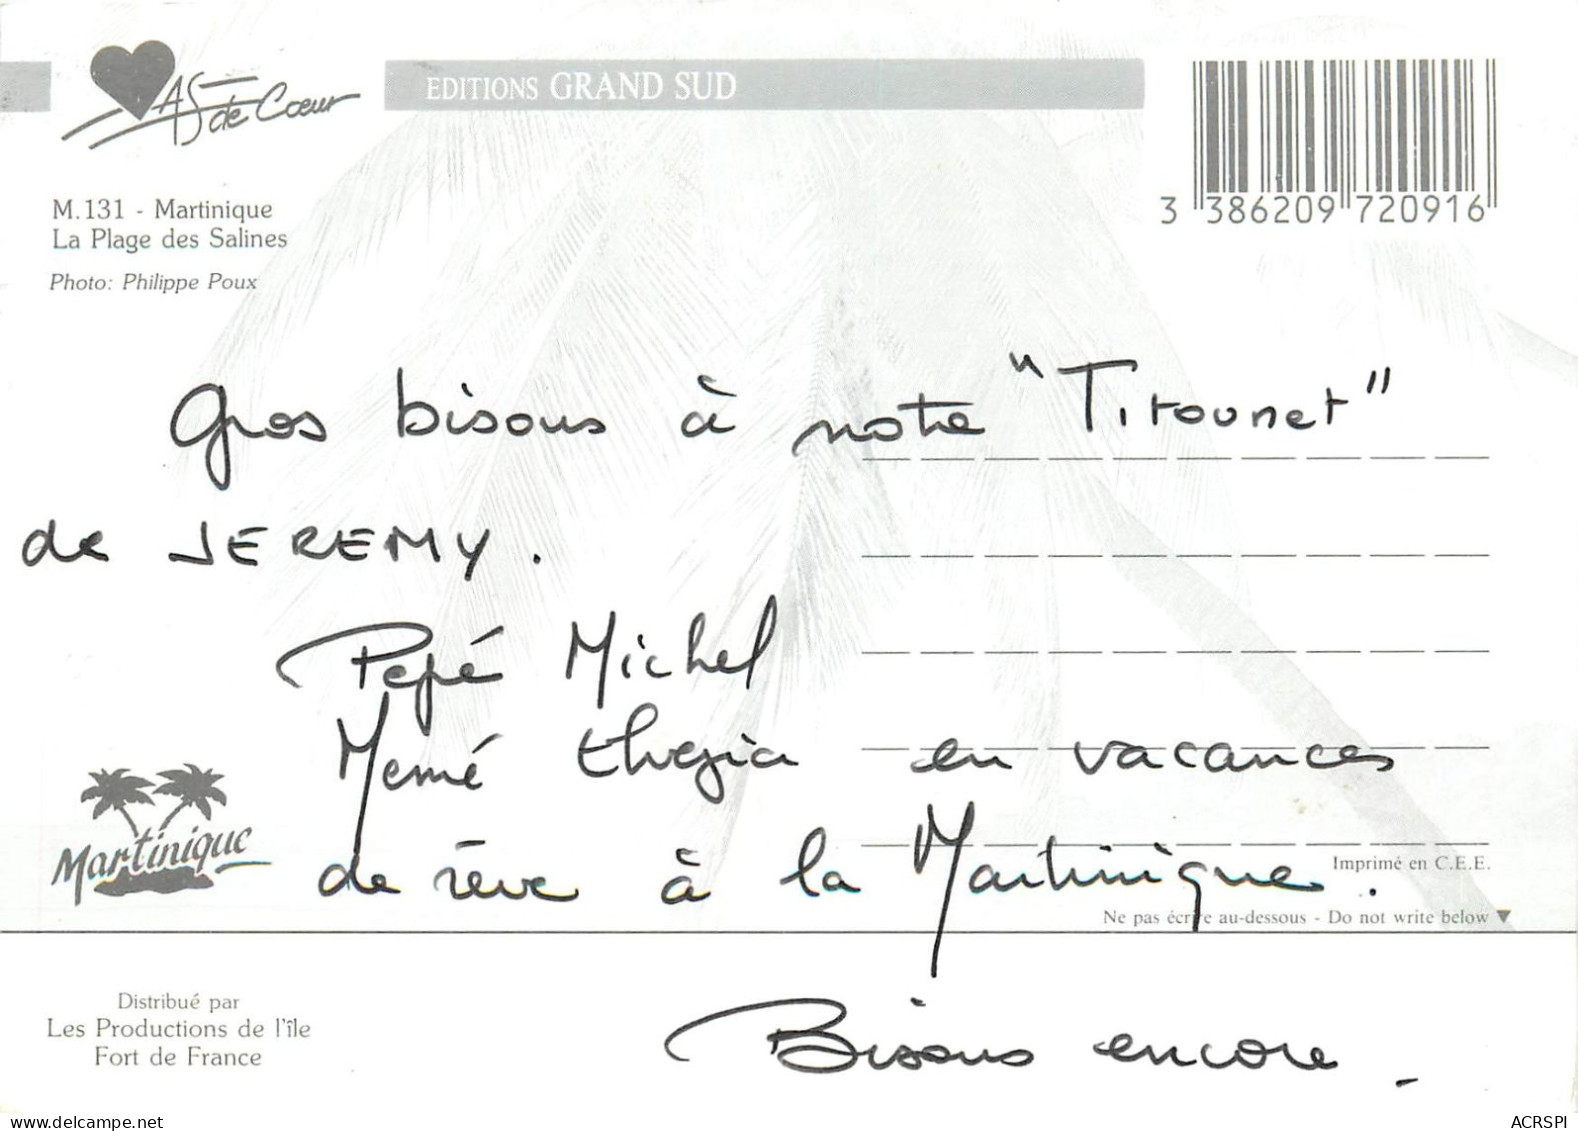 AS de Cœur
EDITIONS GRAND SUD
3 386209 720916
M.131 - Martinique
La Plage des Salines
Photo: Philippe Poux
Gros bisous à notre "Titounet"
de JEREMY.
Pepé Michel
Memé en vacances
de rêve à la Martinique.
Martinique
Imprimé en C.E.E.
Ne pas écrire au-dessous - Do not write below
Distribué par
Les Productions de l'île
Fort de France
Bisous encore
delcampe.net
ACRSPI